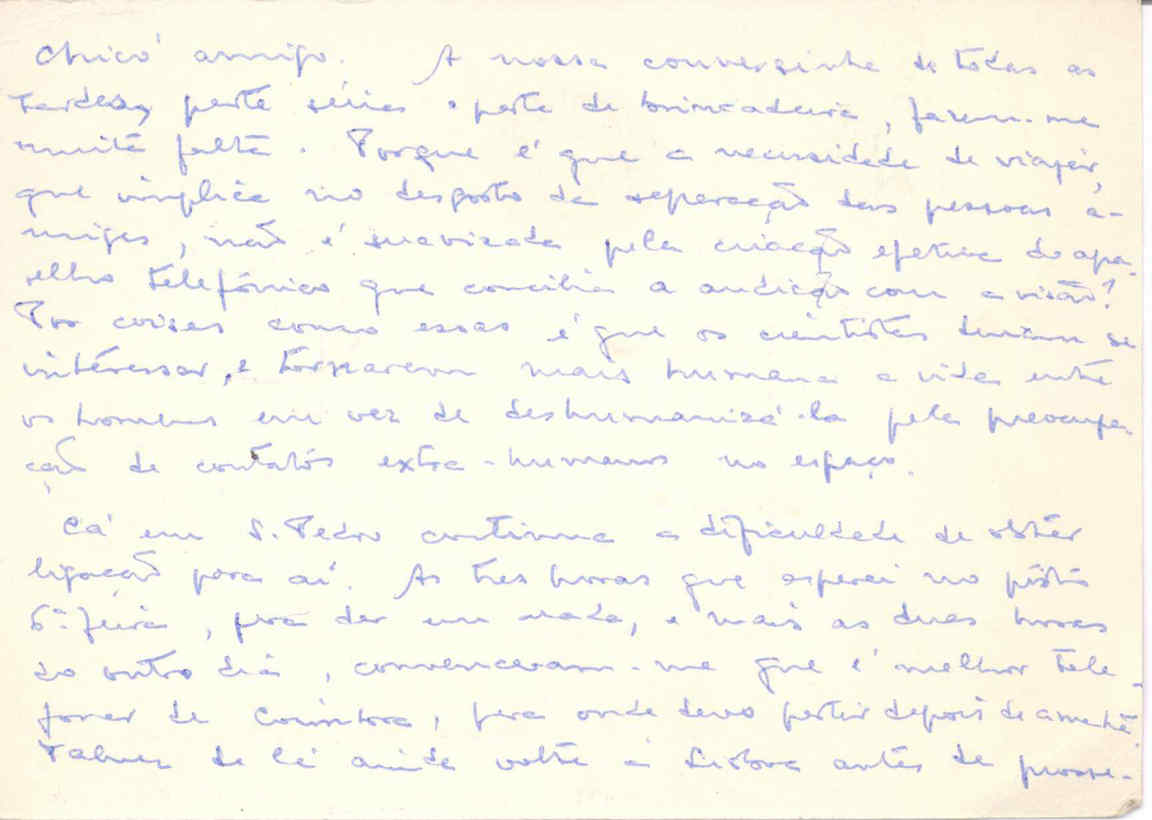 Chico amigo. A nossa conversinha de todas as
tardes, parte séria e parte de brincadeira, fazem-me
muita falta. Porque é que a necessidade de viajar,
que implica no desgosto da separação das pessoas a-
migas, não é suavizada pela criação efetiva do apa-
relho telefônico que concilia a audição com a visão?
Por coisas como essas é que os cientistas deviam se
interessar, e tornarem mais humana a vida entre
os homens em vez de deshumanizá-la pela preocupa-
ção de contatos extra-humanos no espaço.
Cá em S. Pedro continua a dificuldade de obter
ligação para aí. As tres horas que esperei no posto
6ª feira, pra dar em nada, e mais as duas horas
do outro dia, convenceram-me que é melhor tele-
fonar de Coimbra, para onde devo partir depois de amanhã.
Talvez de lá ainda volte à Lisboa antes de prosse-